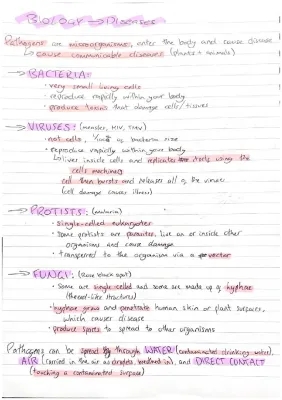 BIOLOGY → DISEASES
Pathogens are microorganisms, enter the body and cause disease
↳ cause communicable diseases (plants + animals)
→ BACTERIA:
• very small living cells
• reproduce rapidly within your body
• produce toxins that damage cells/tissues
→ VIRUSES: (measles, HIV, TMV)
• not cells, of bacteria size
• reproduce rapidly within your body
↳ live inside cells and replicate itself using the
cells machinery
cell then bursts and releases all of the viruses
(cell damage causes illness)
→ PROTISTS: (malaria)
• single-celled eukaryotes
• Some protists are parasites, live on or inside other
organisms and cause damage
• transferred to the organism via a vector
→ FUNGI: (Rose black spot)
• Some are single celled and some are made up of hyphae
(thread-like structures)
• hyphae grow and penetrate human skin or plant surfaces,
which causes disease
• produce spores to spread to other organisms
Pathogens can be spread by through WATER (contaminated drinking water),
AIR (carried in the air as droplets breathed in), and DIRECT CONTACT
(touching a contaminated surface)